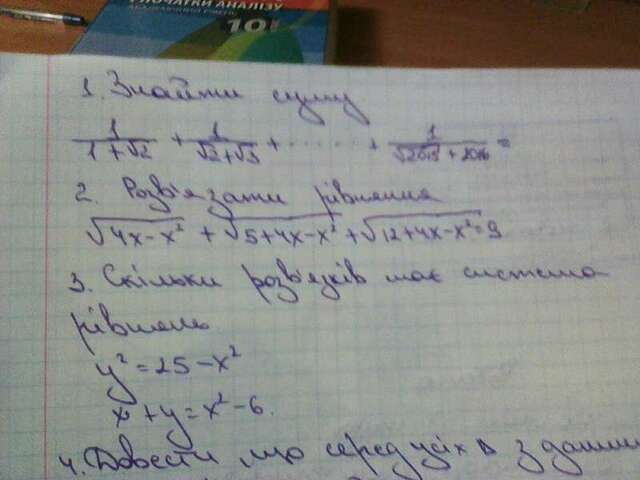 І ПОЧАТКИ АНАЛІЗУ
10
1. Знайти суму
1/(1+√2) + 1/(√2+√3) + ...... + 1/(√2015+√2016) =
2. Розв'язати рівняння
√(4x-x²) + √(5+4x-x²) + √(12+4x-x²) = 9
3. Скільки розв'язків має система
рівнянь
y² = 25 - x²
x + y = x² - 6.
4. Довести, що серед усіх Δ з даним